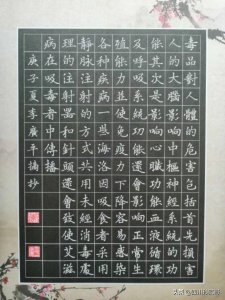 毒品對人體的危害包括首先損害
人的大腦影響中樞神經系統的功
能其次是影響心臟功能血液循環
及呼吸系統功能還會影響正常生
殖能力並使免疫力下降容易感染
各種疾病一些海洛因吸食者采用
靜脈注射的方式共用未經消毒處
理的注射器和針頭還會致使艾滋
病在吸毒者中傳播
庚子夏李廣平摘抄